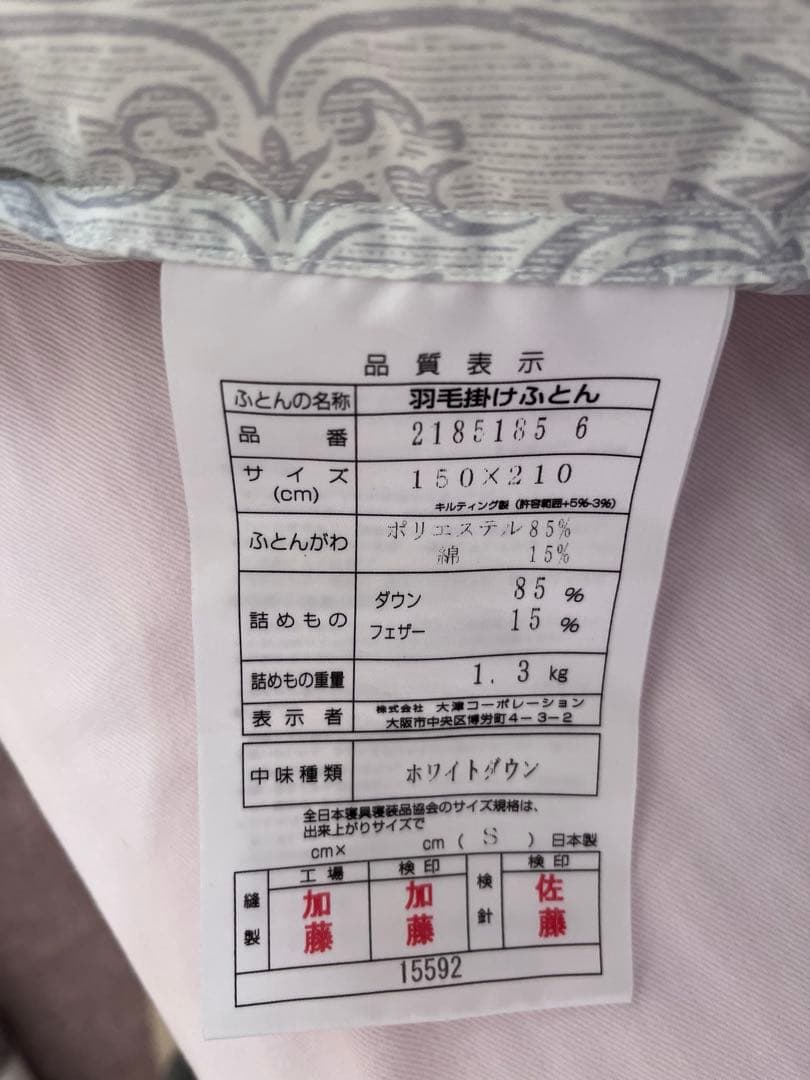 品質表示
ふとんの名称 羽毛掛けふとん
品番 2185185 6
サイズ(cm) 150×210
キルティング製(許容範囲+5%-3%)
ふとんがわ ポリエステル 85%
綿 15%
詰めもの ダウン 85%
フェザー 15%
詰めもの重量 1.3kg
表示者 株式会社 大津コーポレーション
大阪市中央区博労町4-3-2
中味種類 ホワイトダウン
全日本寝具寝装品協会のサイズ規格は、
出来上がりサイズで
cm× cm(S) 日本製
縫製 工場 検印 検針 検印
加藤 加藤 佐藤
15592